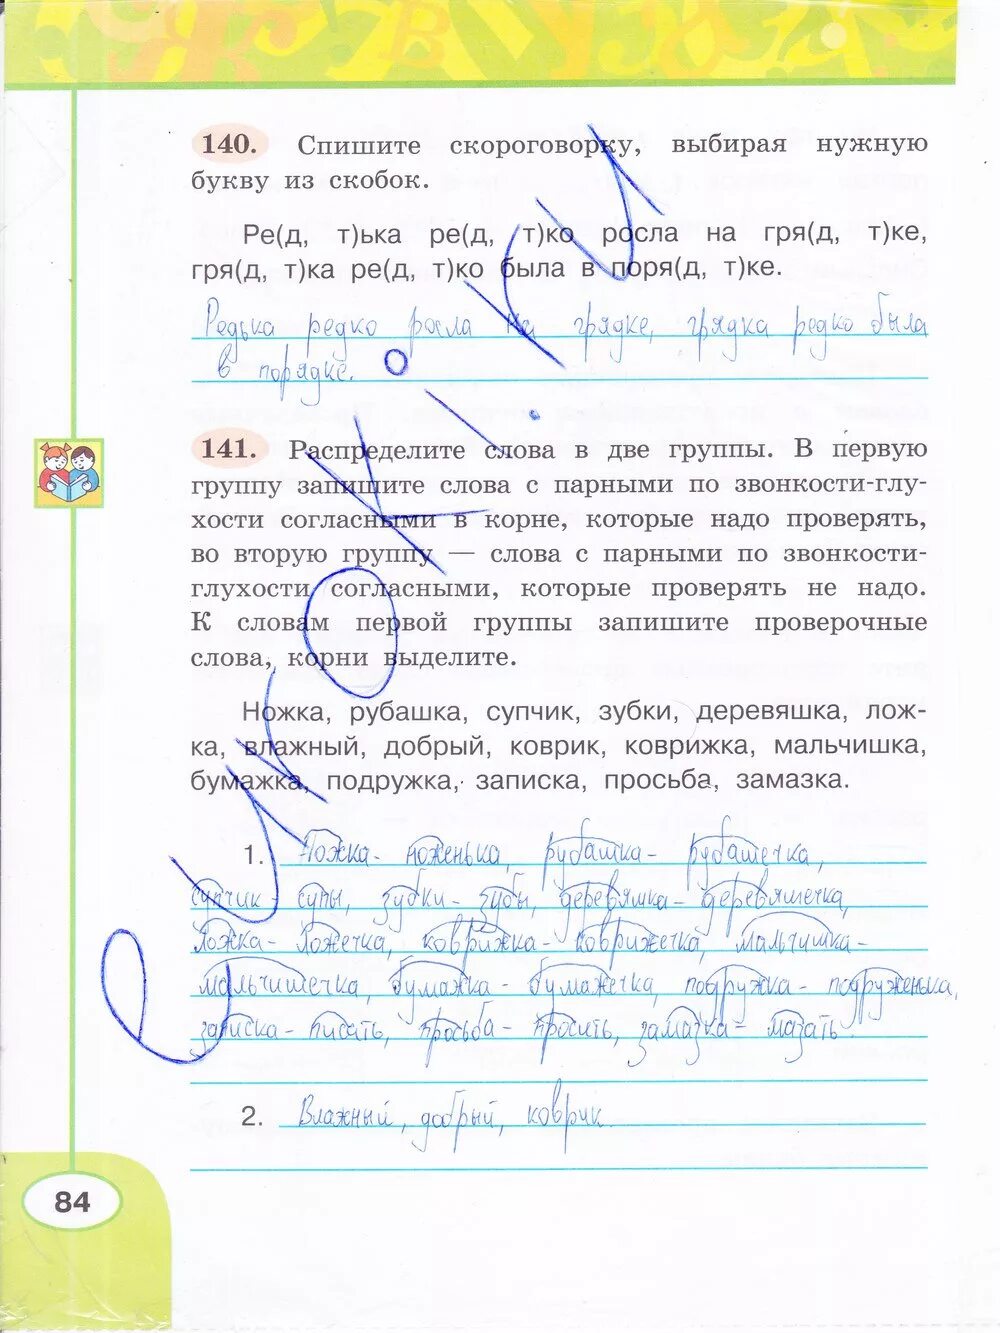 140. Спишите скороговорку, выбирая нужную
букву из скобок.
Ре(д, т)ька ре(д, т)ко росла на гря(д, т)ке,
гря(д, т)ка ре(д, т)ко была в поря(д, т)ке.
Редька редко росла на грядке, грядка редко была
в порядке.
141. Распределите слова в две группы. В первую
группу запишите слова с парными по звонкости-глу-
хости согласными в корне, которые надо проверять,
во вторую группу — слова с парными по звонкости-
глухости согласными, которые проверять не надо.
К словам первой группы запишите проверочные
слова, корни выделите.
Ножка, рубашка, супчик, зубки, деревяшка, лож-
ка, влажный, добрый, коврик, коврижка, мальчишка,
бумажка, подружка, записка, просьба, замазка.
1. Ножка - ноженька, рубашка - рубашечка,
супчик - супы, зубки - зубы, деревяшка - деревяшечка,
ложка - ложечка, коврижка - коврижечка, мальчишка -
мальчишечка, бумажка - бумажечка, подружка - подруженька,
записка - писать, просьба - просить, замазка - мазать.
2. Влажный, добрый, коврик.
84
еуроки.ки